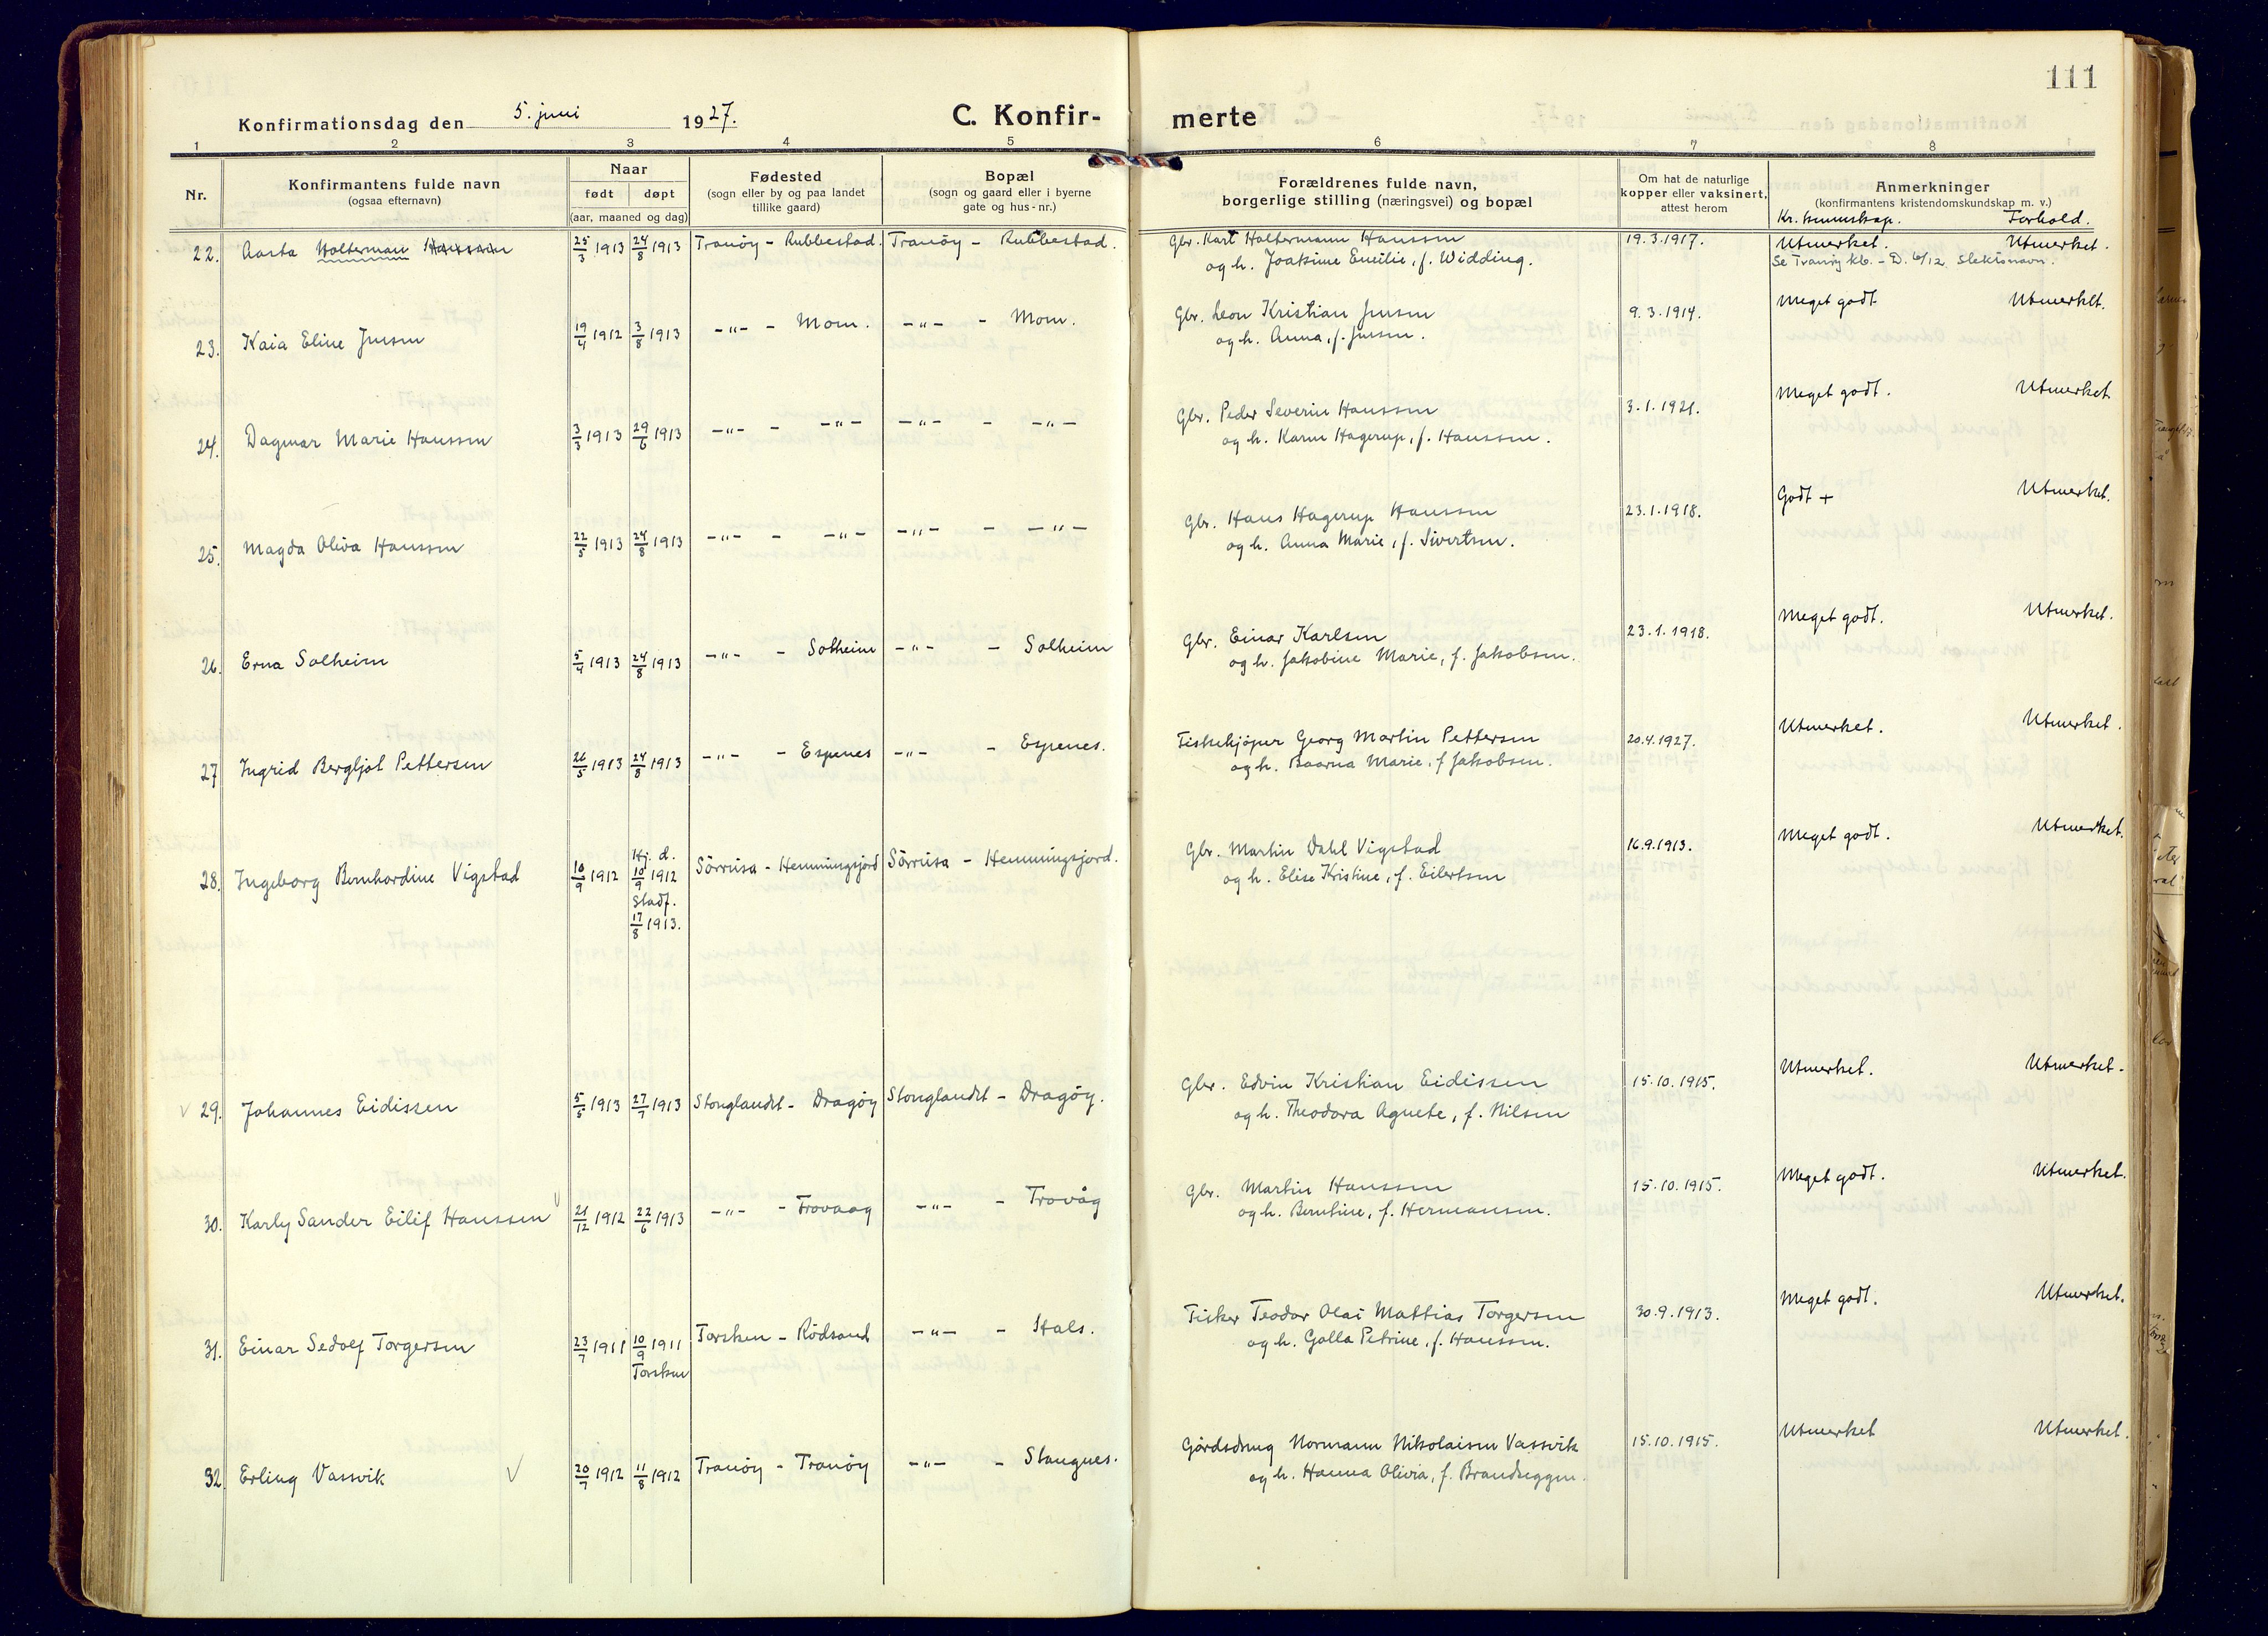 111
Konfirmationsdag den 5. juni 1927. C. Konfirmerte
1 2 3 4 5 6 7 8
Nr. Konfirmantens fulde navn (ogsaa efternavn)
Naar født døpt (aar, maaned og dag)
Fødested (sogn eller by og paa landet tillike gaard)
Bopæl (sogn og gaard eller i byerne gate og hus-nr.)
Forældrenes fulde navn, borgerlige stilling (næringsvei) og bopæl
Om hat de naturlige kopper eller vaksinert, attest herom
Anmerkninger (konfirmantens kristendomskundskap m. v.)
Kr. kunnskap. Forhold.
22. Aasta Holterman Hanssen 25/3 1913 24/8 1913 Tranöy - Rubbestad. Tranöy - Rubbestad. Gbr. Karl Holtermann Hanssen 19.3.1917. Utmerket. Utmerket.
og h. Joakime Emilie, f. Widding. Se Tranöy kb. - D. 6/12 Slektsnavn.
23. Kaia Eline Jensen 19/4 1912 3/8 1913 -"- - Mom. -"- - Mom. Gbr. Leon Kristian Jensen 9.3.1914. Meget godt Utmerket.
og h. Anna, f. Jensen.
24. Dagmar Marie Hanssen 3/3 1913 29/6 1913 -"- - -"- -"- - -"- Gbr. Peder Severin Hanssen 3.1.1921. Meget godt. Utmerket
og h. Karen Hagerup, f. Hanssen.
25. Magda Oliva Hanssen 22/5 1913 24/8 1913 -"- - -"- -"- - -"- Gbr. Hans Hagerup Hanssen 23.1.1918. Godt + Utmerket.
og h. Anna Marie, f. Sivertsen.
26. Erna Solheim 5/4 1913 24/8 1913 -"- - Solheim -"- - Solheim Gbr. Einar Karlsen 23.1.1918. Meget godt. Utmerket.
og h. Jakobine Marie, f. Jakobsen.
27 Ingrid Bergljot Pettersen 26/5 1913 24/8 1913 -"- - Espenes -"- - Espenes. Fiskekjöper Georg Martin Pettersen 20.4.1927. Utmerket. Utmerket.
og h. Baarna Marie, f Jakobsen.
28. Ingeborg Bernhardine Vigstad 10/9 1912 Hj. d. 10/9 1912 Stadf. 17/8 1913. Sörreisa - Hemmingsjord Sörreisa - Hemmingsjord. Gbr. Martin Dahl Vigstad 16.9.1913. Meget godt. Utmerket.
og h. Elise Kristine, f. Eilertsen
29. Johannes Eidissen 5/5 1913 27/7 1913 Stonglandet - Dragöy Stonglandet - Dragöy. Gbr. Edvin Kristian Eidissen 15.10.1915. Utmerket. Utmerket.
og h. Theodora Agnete, f. Nilsen
30. Karly Sander Eilif Hanssen 21/12 1912 22/6 1913 -"- - Trovaag -"- - Trovåg Gbr. Martin Hanssen 15.10.1915. Meget godt. Utmerket.
og h. Berntine, f. Hermansen.
31. Einar Sedolf Torgersen 23/7 1911 10/9 1911 Torsken Torsken - Rödsand -"- - Hals. Fisker Teodor Olai Mattias Torgersen 30.9.1913. Meget godt. Utmerket.
og h. Galla Petrine, f. Hanssen.
32. Erling Vassvik 20/7 1912 11/8 1912 Tranöy - Tranöy -"- - Stangnes. Gårdsdreng Normann Nikolaisen Vassvik 15.10.1915. Utmerket Utmerket.
og h. Hanna Olivia, f. Brandseggen.